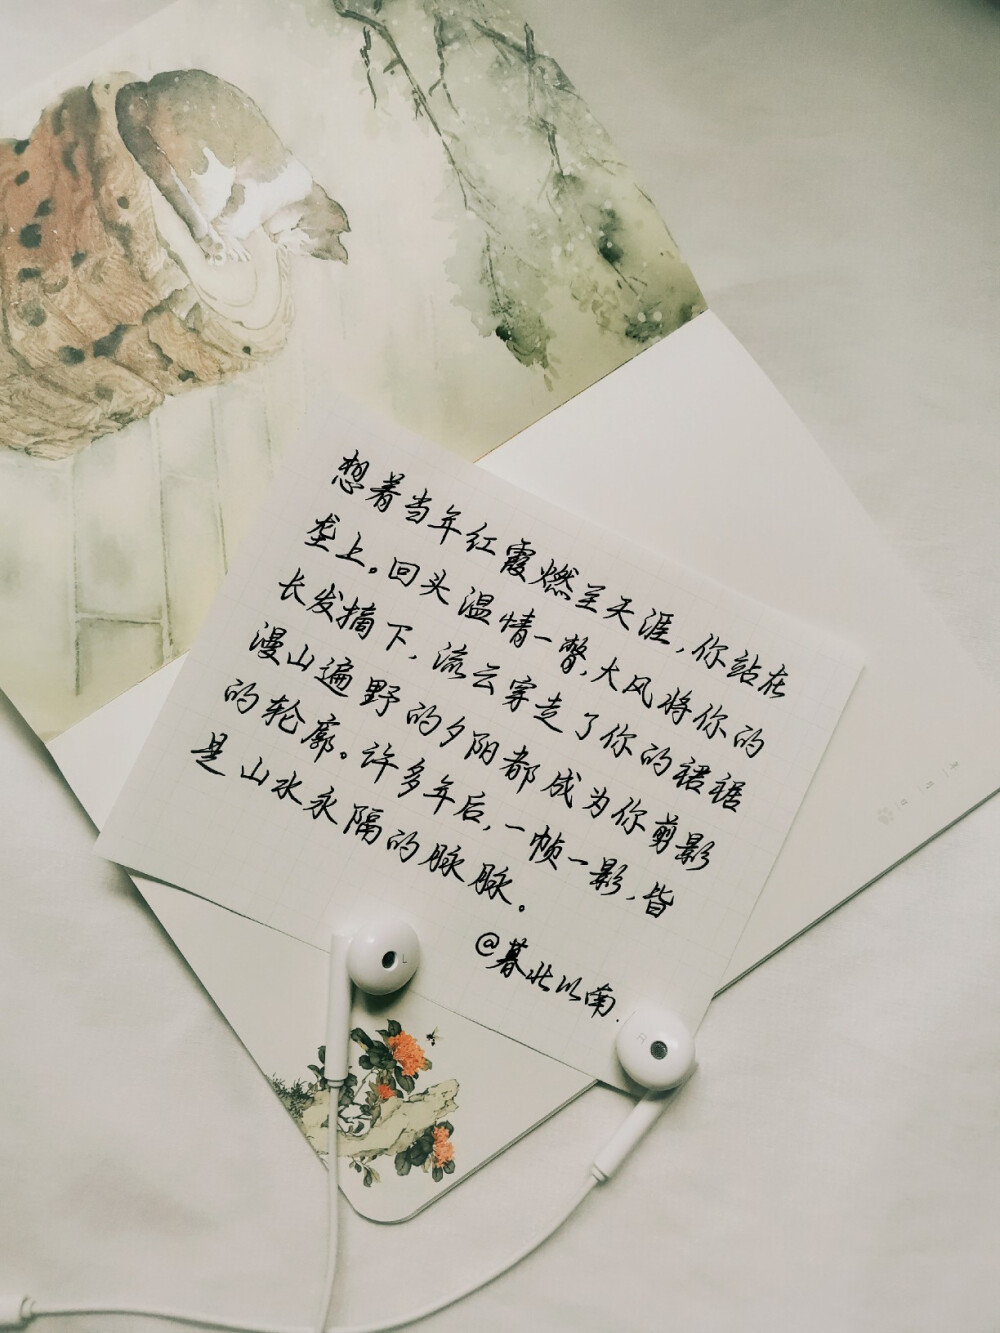 想着当年红霞燃至天涯，你站在
垄上。回头温情一瞥，大风将你的
长发摘下，流云穿走了你的裙裾
漫山遍野的夕阳都成为你剪影
的轮廓。许多年后，一帧一影，皆
是山水永隔的脉脉。
@暮北以南.
L
R